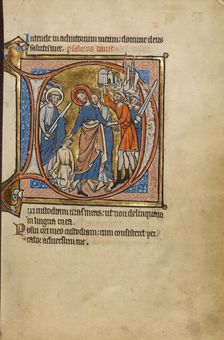 Intende in adiutorium meum: domine deus
salutis mee. psalmus dauid
Dixi custodiam uias meas: ut non delinquam
in lingua mea.
Posui ori meo custodiam: cum consisteret pec
cator aduersum me.